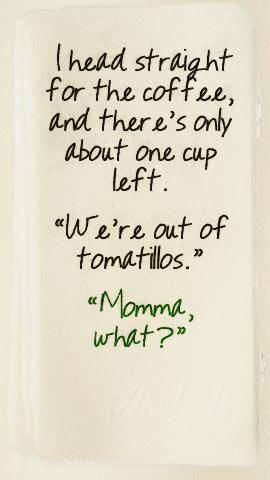 I head straight
for the coffee,
and there's only
about one cup
left.
“We're out of
tomatillos.”
“Momma,
what?”